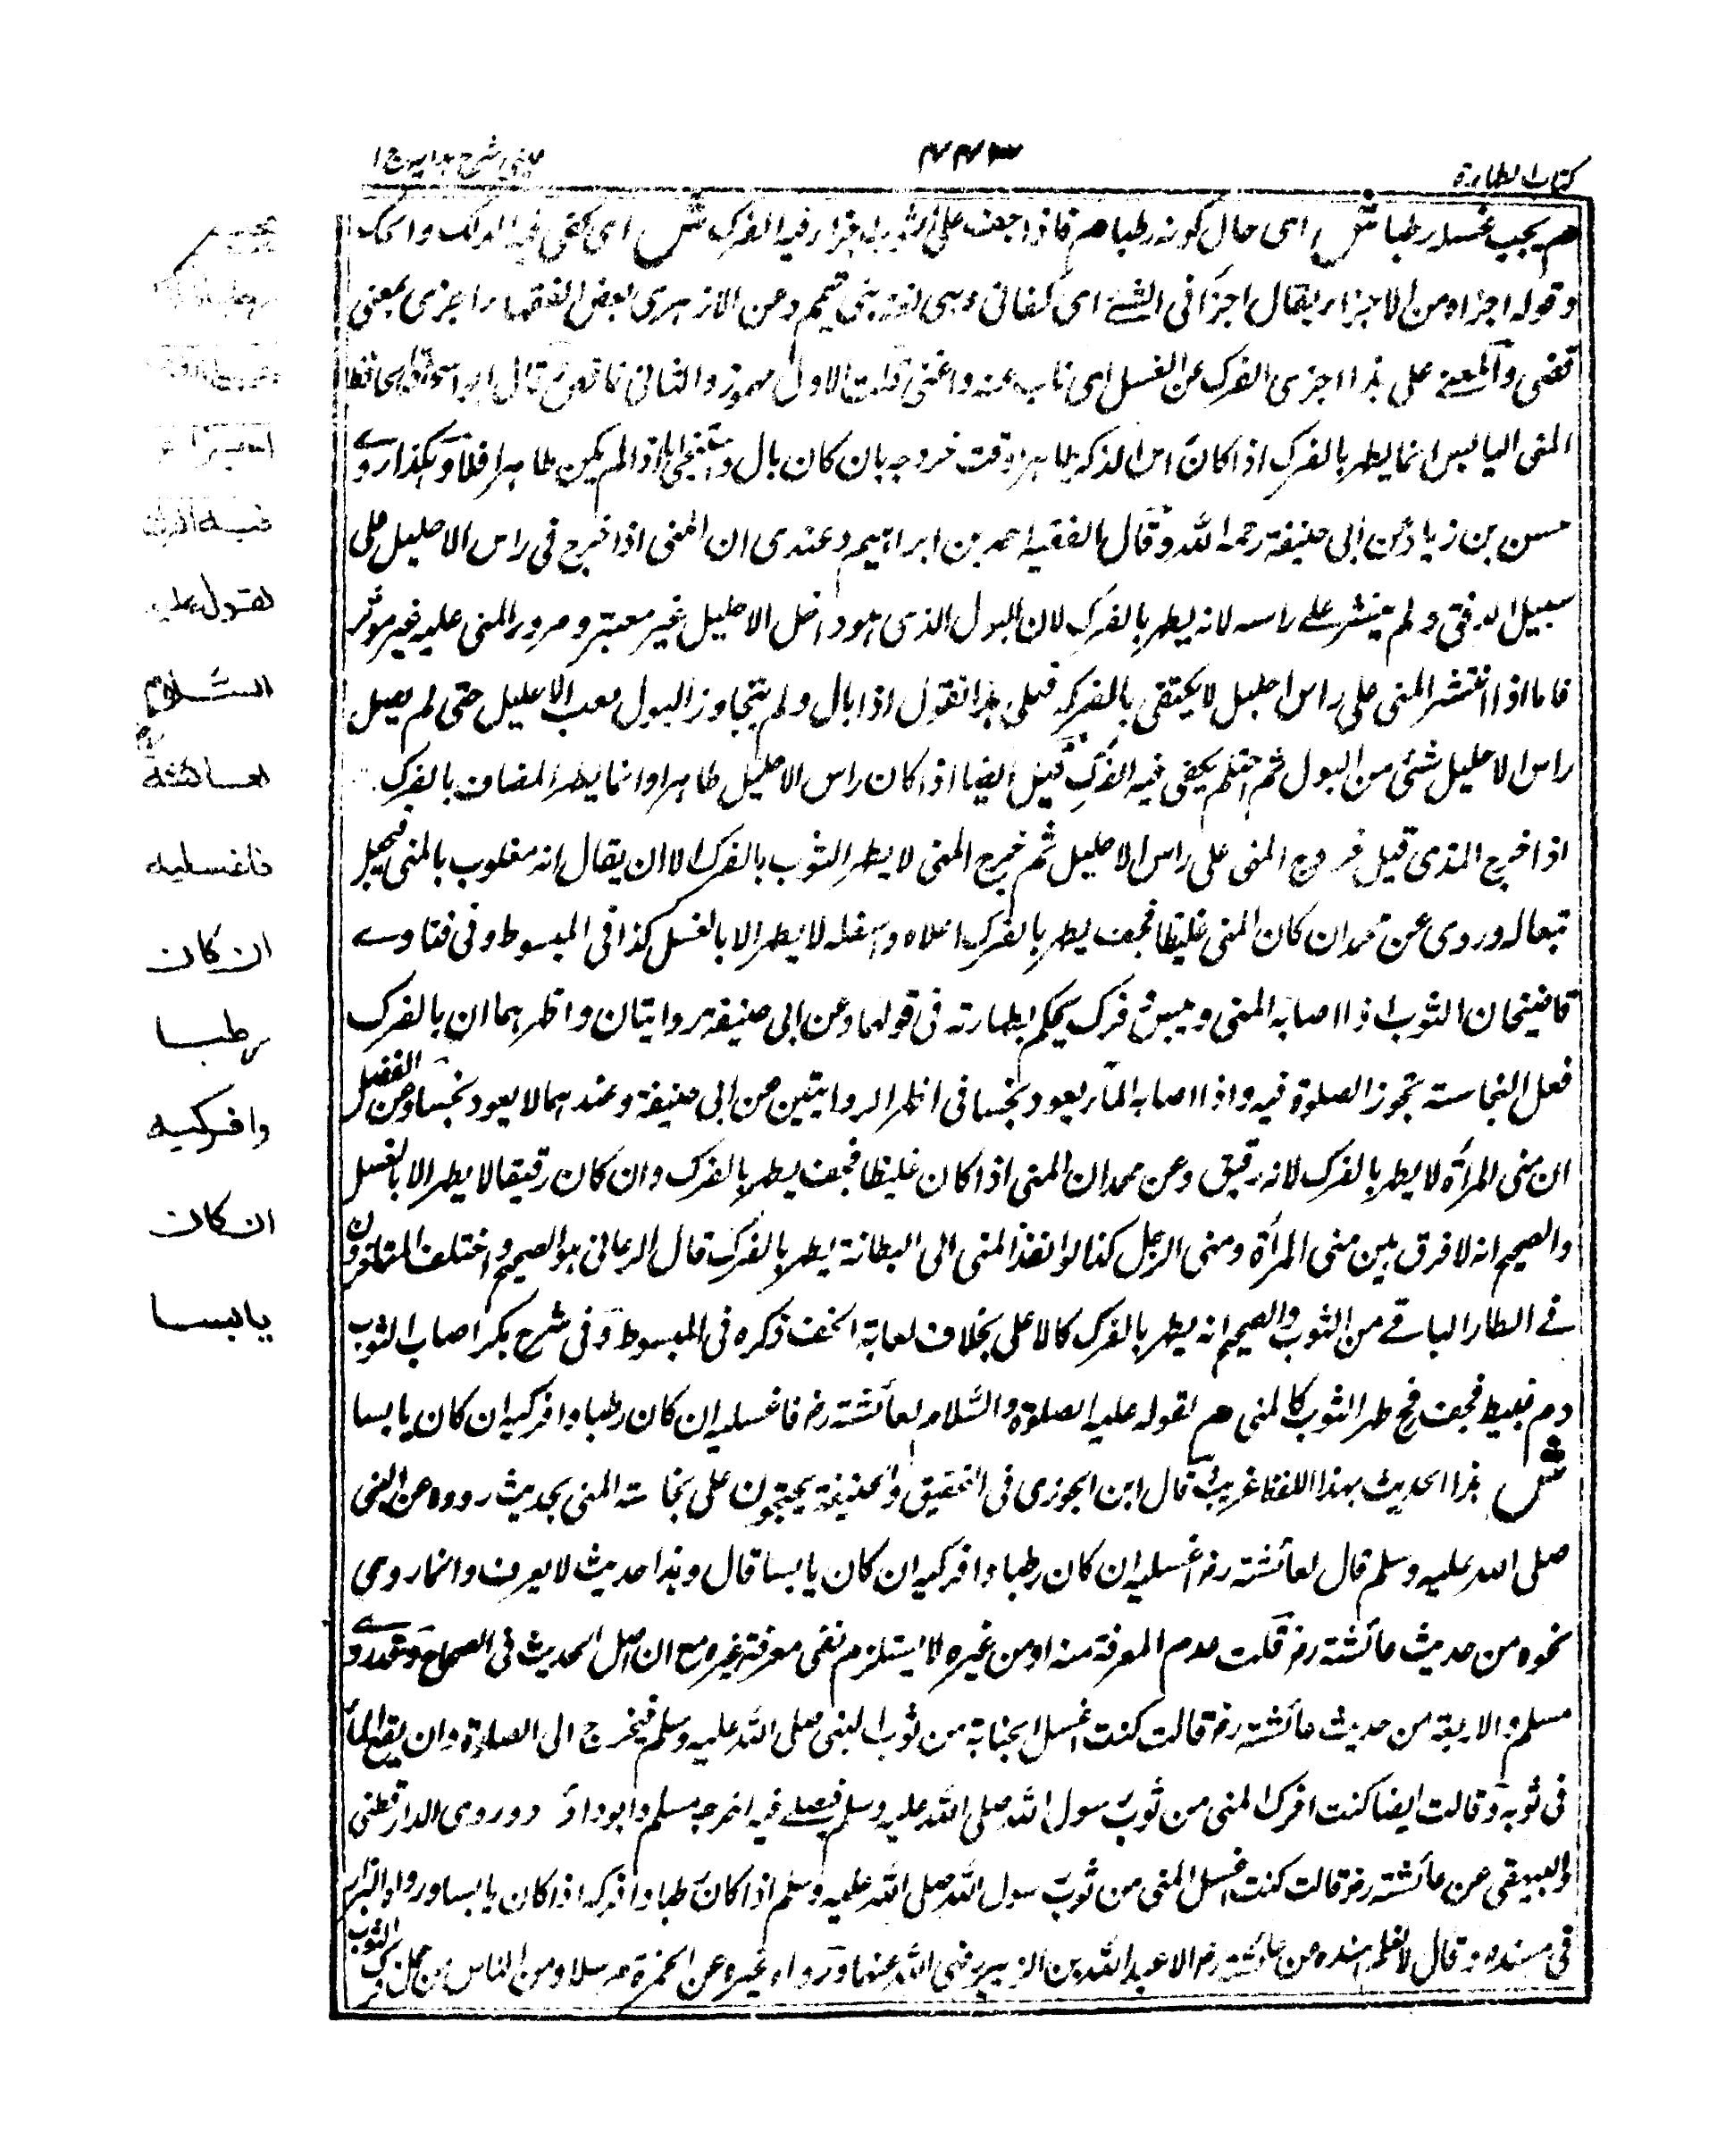 كتاب الطهارة
۴۴۳
عينى شرح هدايه ج ١
هم يجب غسله رطبا ش اى حال كونه رطبا هم فاذا جف على الثوب اجزأ فيه الفرك ش اى كفى فيه الدلك والحك
وقوله اجزاه من الاجزاء يقال اجزأنى الشئ اى كفانى وهى لغة بنى تميم وعن الازهرى بعض الفقهاء اجزى بمعنى
قضى والمعنى على هذا اجزى الفرك عن الغسل اى ناب عنه واغنى قلت الاول مهموز والثانى ناقص قال ابو اسحاق الحافظ
المنى اليابس انما يطهر بالفرك اذا كان راس الذكر طاهرا وقت خروجه بان كان بال واستنجى اما اذا لم يكن طاهرا فلا وهكذا روى
حسن بن زياد عن ابى حنيفة رحمه الله وقال الفقيه احمد بن ابراهيم وعندى ان المنى اذا خرج فى راس الاحليل على
سبيل الدفق ولم ينشر على راسه لانه يطهر بالفرك لان البول الذى هو داخل الاحليل غير معتبر ومرور المنى عليه غير مؤثر
فاما اذا انتشر المنى على راس احليل لا يكتفى بالفركه فعلى هذا نقول اذا بال ولم يتجاوز البول ثقب الاحليل حتى لم يصل
راس الاحليل شئ من البول ثم احتلم يكفى فيه الفرك قيل ايضا اذا كان راس الاحليل طاهرا وانما يطهر المضاف بالفرك
اذا خرج المذى قبل خروج المنى على راس الاحليل ثم خرج المنى لا يطهر الثوب بالفرك الا ان يقال انه مغلوب بالمنى فيجعل
تبعا له وروى عن محمد ان كان المنى غليظا فجف يطهر بالفرك اعلاه واسفله لا يطهر الا بالغسل كذا فى المبسوط وفى فتاوى
قاضيخان الثوب اذا اصابه المنى ويبس فرك يحكم بطهارته فى قولهما وعن ابى حنيفة روايتان واظهرهما ان بالفرك
فعل النجاسة تجوز الصلوة فيه واذا اصابه الماء يعود نجسا فى اظهر الروايتين عن ابى حنيفة وعندهما لا يعود نجسا وعن الفضلى
ان منى المرأة لا يطهر بالفرك لانه رقيق وعن محمد ان المنى اذا كان غليظا فجف يطهر بالفرك وان كان رقيقا لا يطهر الا بالغسل
والصحيح انه لا فرق بين منى المرأة ومنى الرجل كذا لو نفذ المنى الى البطانة يطهر بالفرك قال الرعانى هو الصحيح واختلف المتاخرون
فى الطار الباقى من الثوب والصحيح انه يطهر بالفرك كالاعلى بخلاف لعابة الخف ذكره فى المبسوط وفى شرح بكر اصاب الثوب
دم عبيط فجف فح طهر الثوب كالمنى هم لقوله عليه الصلوة والسلام لعائشة رض فاغسليه ان كان رطبا وافركيه ان كان يابسا
ش هذا الحديث بهذا اللفظ غريب قال ابن الجوزى فى التحقيق والحنيفة يحتجون على نجاسة المنى بحديث رووه عن النبى
صلى الله عليه وسلم قال لعائشة رض اغسليه ان كان رطبا وافركيه ان كان يابسا قال وهذا حديث لا يعرف وانما روى
نحوه من حديث عائشة رض قلت عدم المعرفة منه او من غيره لا يستلزم نفى معرفة غيره مع ان اصل الحديث فى الصحاح وقد روى
مسلم والاربعة من حديث عائشة رض قالت كنت اغسل الجنابة من ثوب النبى صلى الله عليه وسلم فيخرج الى الصلوة وان بقع الماء
فى ثوبه وقالت ايضا كنت افرك المنى من ثوب رسول الله صلى الله عليه وسلم فيصلى فيه اخرجه مسلم وابوداؤد وروى الدارقطنى
والبيهقى عن عائشة رض قالت كنت اغسل المنى من ثوب رسول الله صلى الله عليه وسلم اذا كان رطبا وافركه اذا كان يابسا ورواه البزار
فى مسنده وقال لا نعلم اسنده عن عائشة رض الا عبد الله بن الزبير رضى الله عنهما ورواه غيره عن الحمزة مرسلا ومن الناس من حمل فرك الثوب
يجب
رطبا فاذا
جف على الثوب
اجزأ
فيه الفرك
لقوله عليه
السلام
لعائشة رض
فاغسليه
ان كان
رطبا
وافركيه
ان كان
يابسا